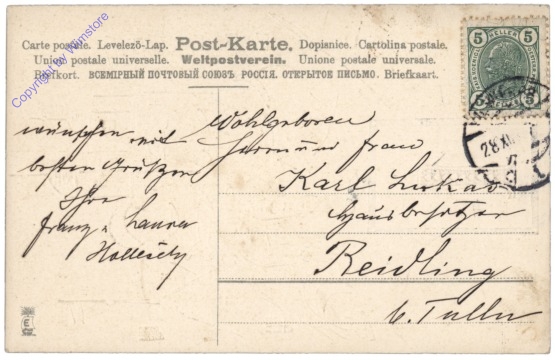 Copyright by Wumstore
Carte postale. Levelező-Lap. Post-Karte. Dopisnice. Cartolina postale.
Union postale universelle. Weltpostverein. Unione postale universale.
Brefkort. ВСЕМІРНЫЙ ПОЧТОВЫЙ СОЮЗЪ РОССІЯ. ОТКРЫТОЕ ПИСЬМО. Briefkaart.
5 HELLER 5
5 5
28.XII
wünschen mit
besten Grüßen
Ihre
Franz u. Laura
Wohlgeboren
Herrn und Frau
Karl Lukas
Hausbesitzer
Reidling
b. Tulln
E